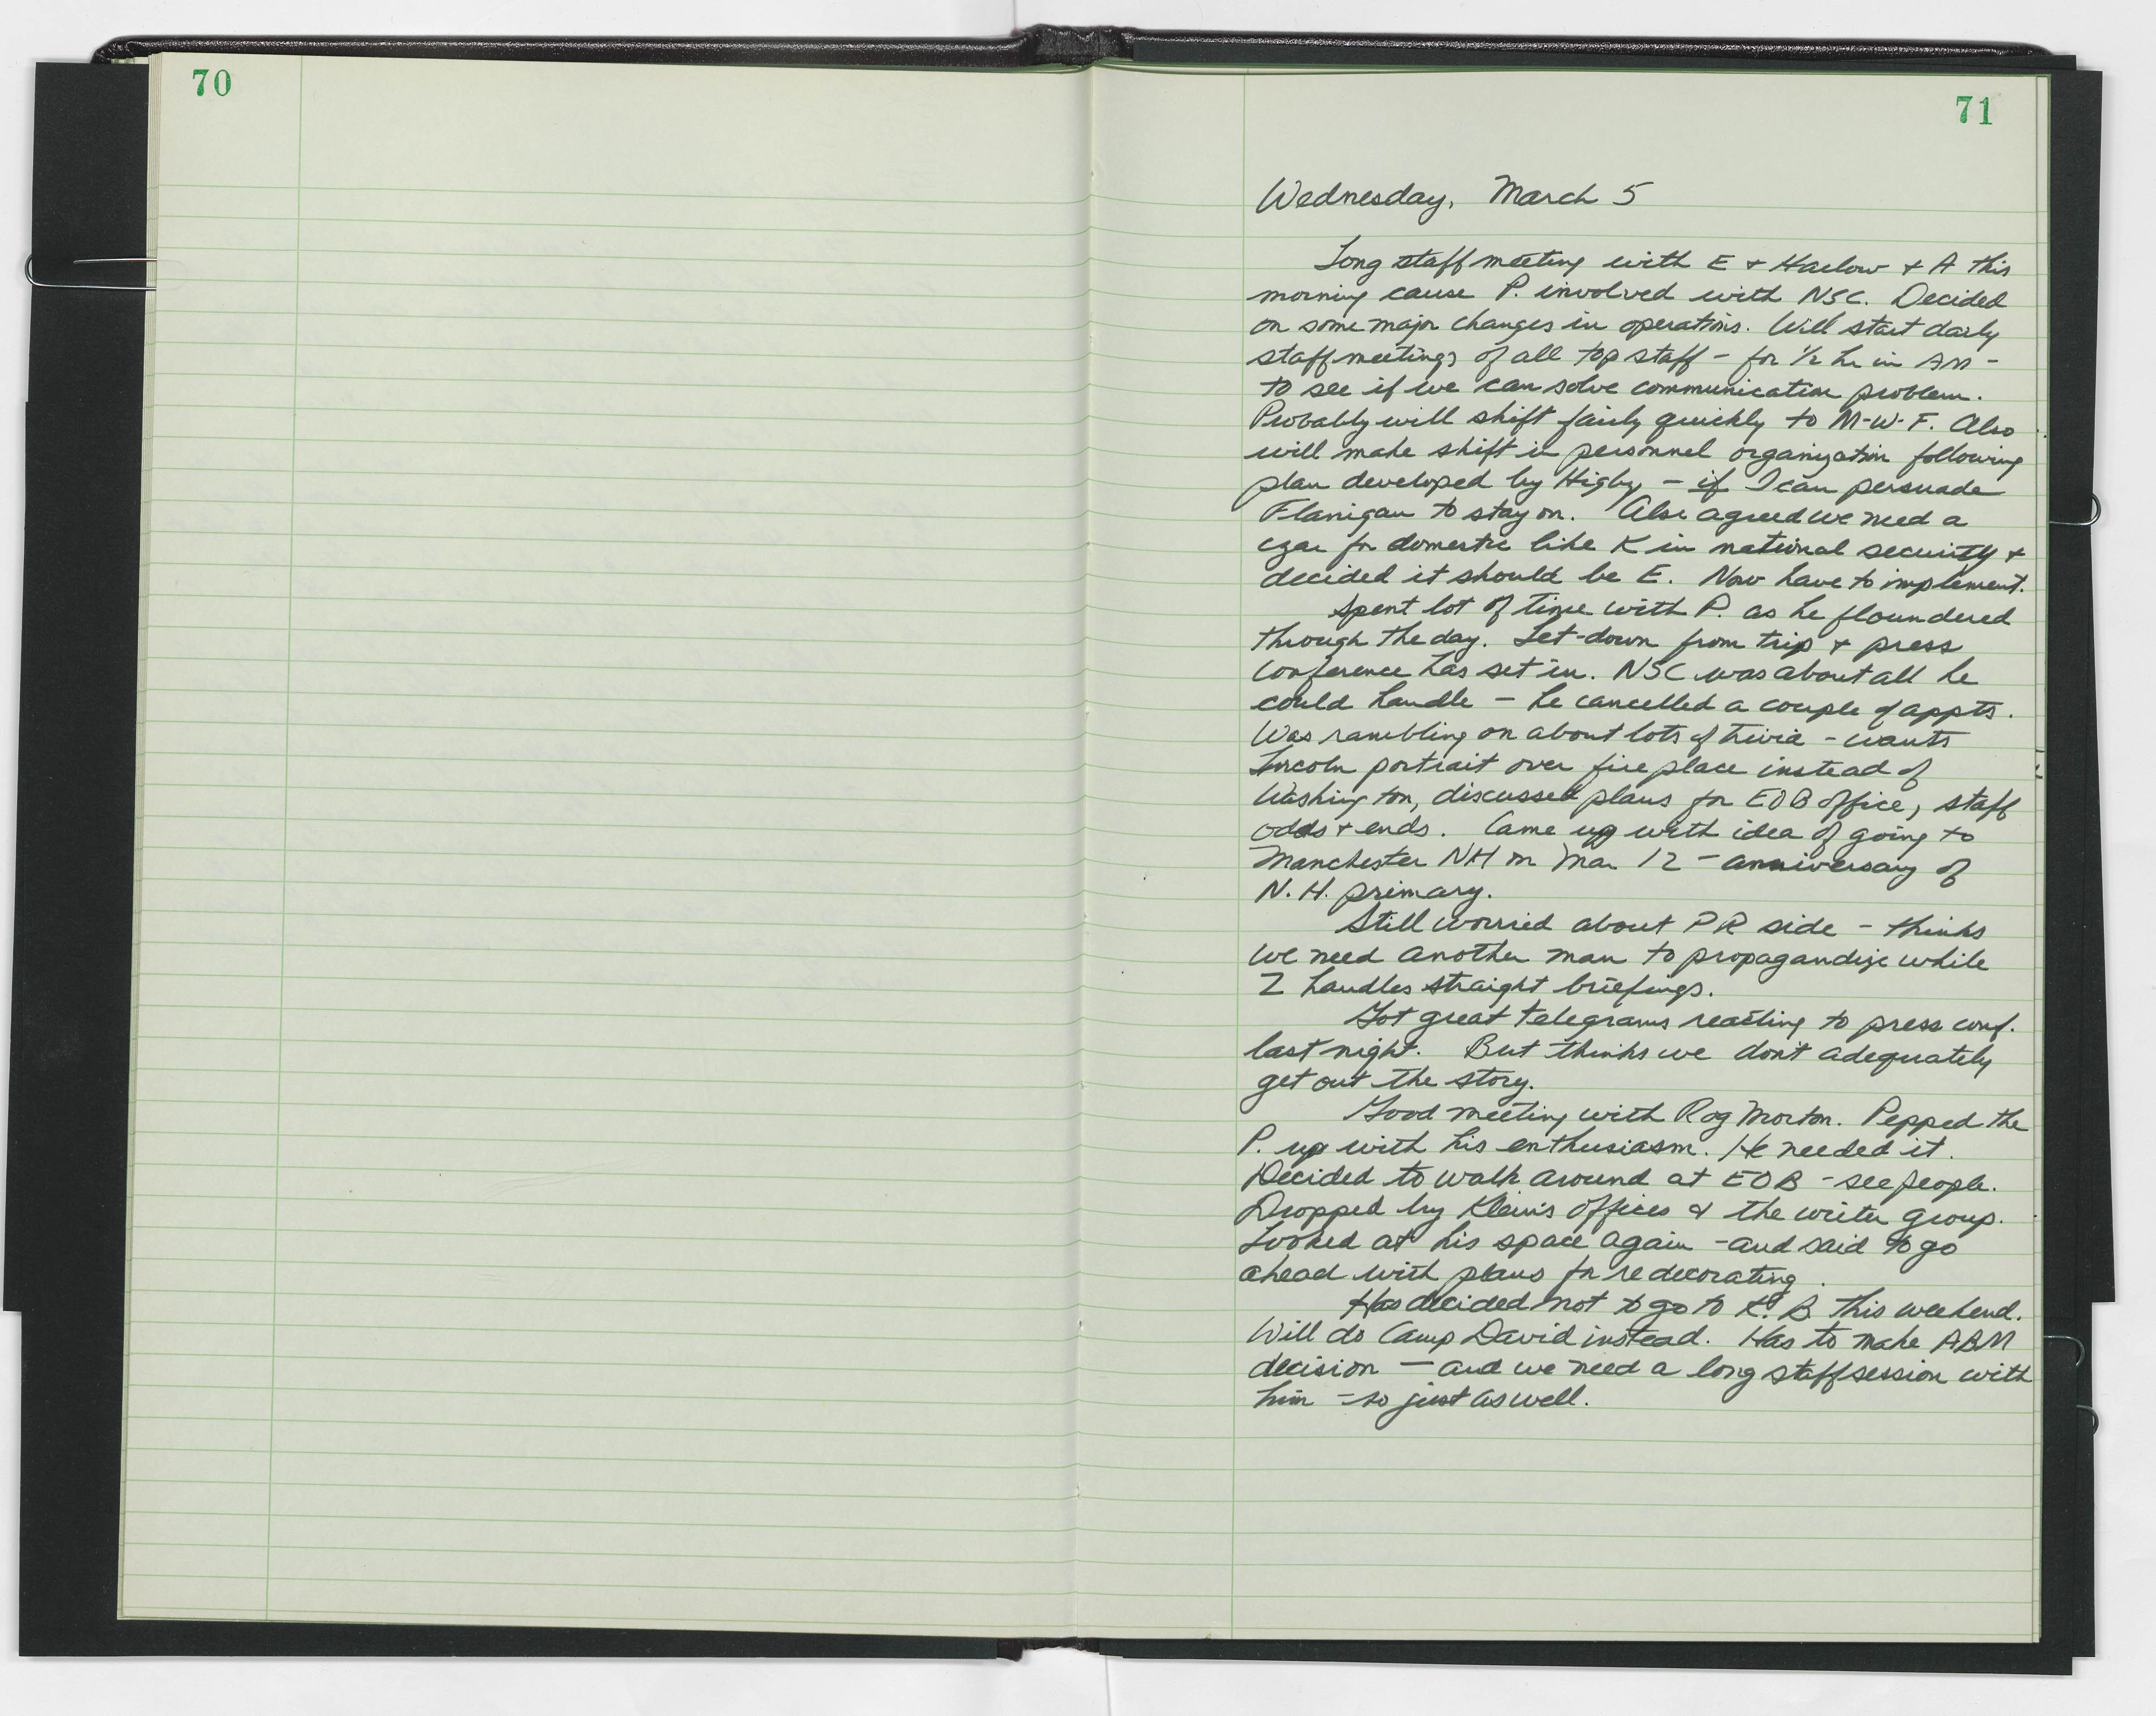 70
71
Wednesday, March 5
Long staff meeting with E & Harlow & A this
morning cause P. involved with NSC. Decided
on some major changes in operations. Will start daily
staff meetings of all top staff - for 1/2 hr in AM -
to see if we can solve communication problem.
Probably will shift fairly quickly to M-W-F. Also
will make shift in personnel organization following
plan developed by Higby - if I can persuade
Flanigan to stay on. Also agreed we need a
czar for domestic like K in national security &
decided it should be E. Now have to implement.
Spent lot of time with P. as he floundered
through the day. Let-down from trip & press
conference has set in. NSC was about all he
could handle - he cancelled a couple of appts.
Was rambling on about lots of trivia - wants
Lincoln portrait over fire place instead of
Washington, discussed plans for EOB office, staff
odds & ends. Came up with idea of going to
Manchester NH on Mar 12 - anniversary of
N.H. primary.
Still worried about PR side - thinks
we need another man to propagandize while
Z handles straight briefings.
Got great telegrams reacting to press conf.
last night. But thinks we don't adequately
get out the story.
Good meeting with Rog Morton. Pepped the
P. up with his enthusiasm. He needed it.
Decided to walk around at EOB - see people.
Dropped by Klein's offices & the writer group.
Looked at his space again - and said to go
ahead with plans for redecorating.
Has decided not to go to K.B this weekend.
Will do Camp David instead. Has to make ABM
decision - and we need a long staff session with
him - so just as well.